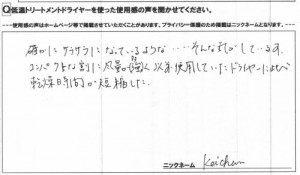 Q低温トリートメントドライヤーを使った使用感の声を聞かせてください。
使用感の声はホームページ等で掲載させていただくことがあります。プライバシー保護のため掲載はニックネームとなります。
確かにサラサラになっているような…そんな気がしています。
コンパクトな割に風量が強く以前使用していたドライヤーに比べ
乾燥時間が短縮した。
ニックネーム Keichan